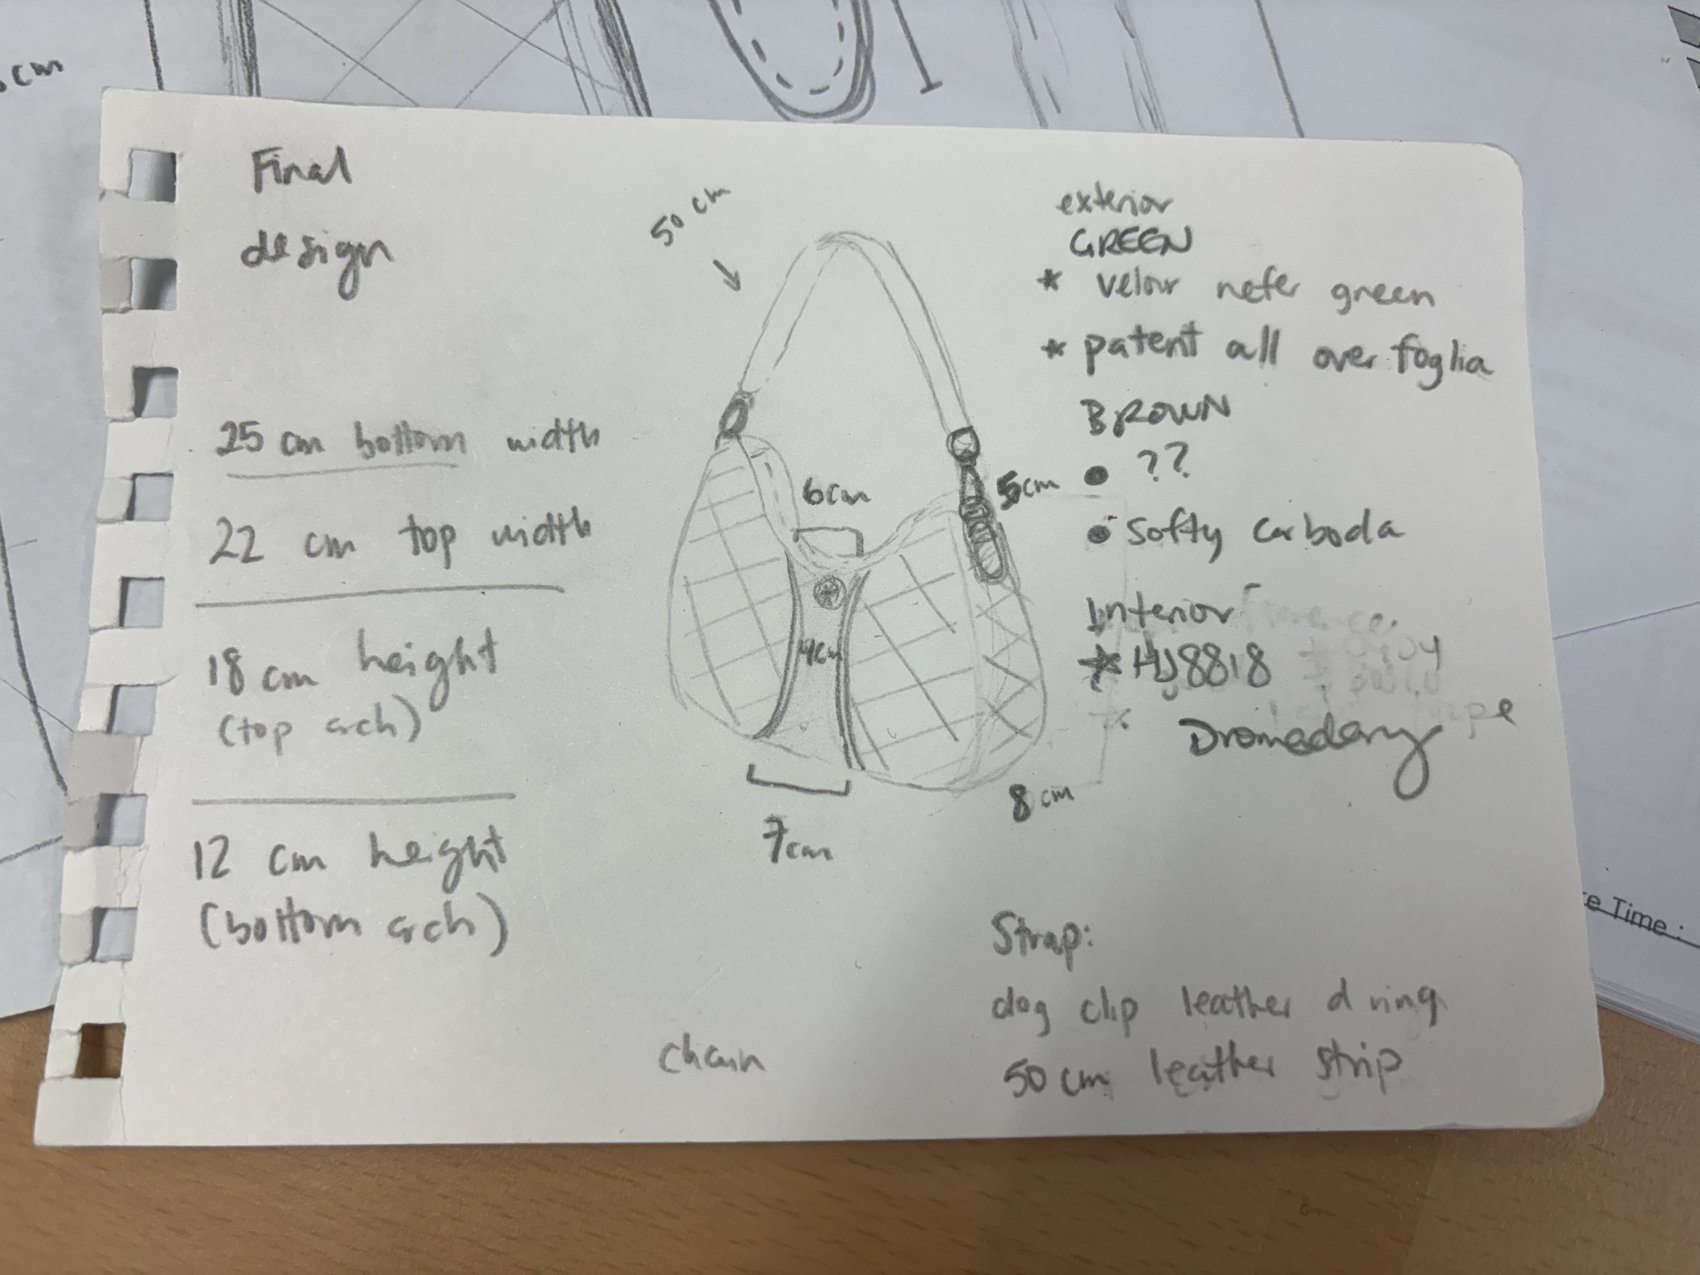 cm
Final
design
25 cm bottom width
22 cm top width
18 cm height
(top arch)
12 cm height
(bottom arch)
50 cm
6cm
5cm
4cm
7cm
8 cm
chain
exterior
GREEN
* velour nefer green
* patent all over foglia
BROWN
• ??
• Softy carboda
Interior
* HJ8818
Dromedary
Strap:
dog clip leather d ring
50 cm leather strip
Time :